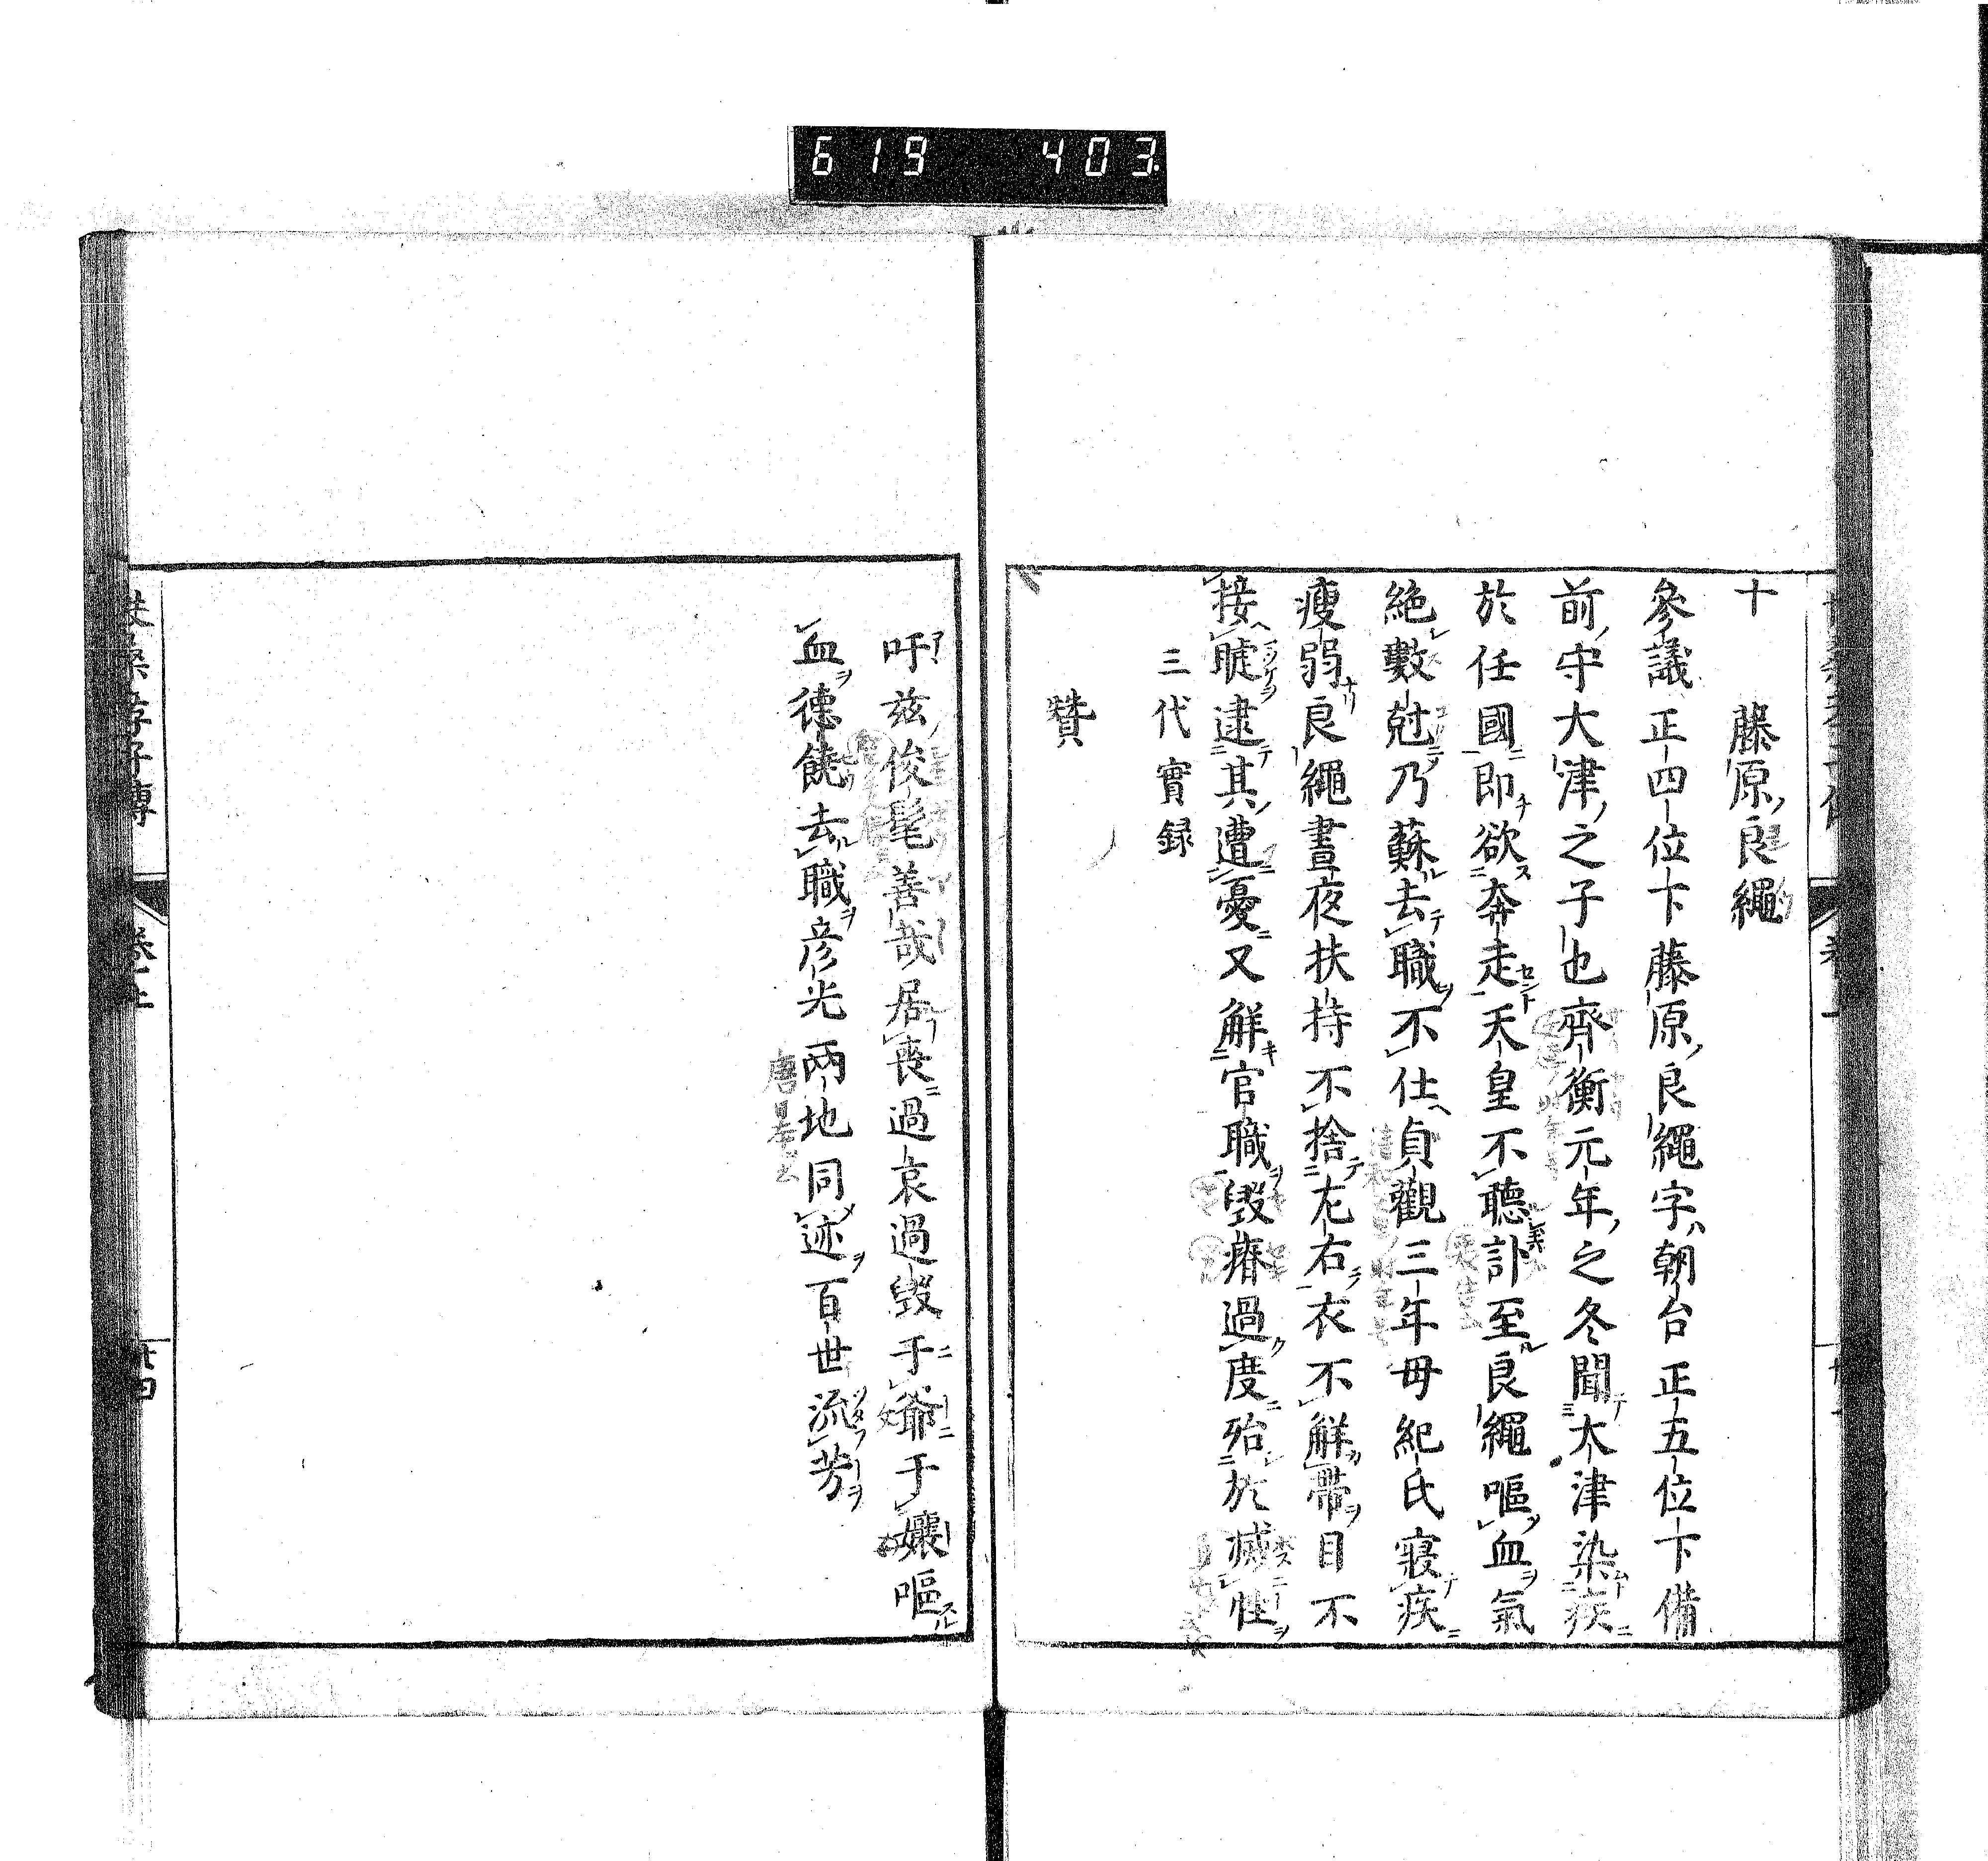 619 403
十 藤原良繩
參議正四位下藤原良繩字朝台正五位下備
前守大津之子也齊衡元年之冬聞大津染疾
於任國即欲奔走天皇不聽訃至良繩嘔血氣
絶數尅乃蘇去職不仕貞觀三年母紀氏寢疾
瘦弱良繩晝夜扶持不捨左右衣不解帶目不
接睫逮其遭憂又解官職毀瘠過度殆於滅性
三代實録
贊
吁兹俊髦善哉居喪過哀過毀于爺于孃嘔
血德饒去職彦光兩地同迹百世流芳
孝子傳